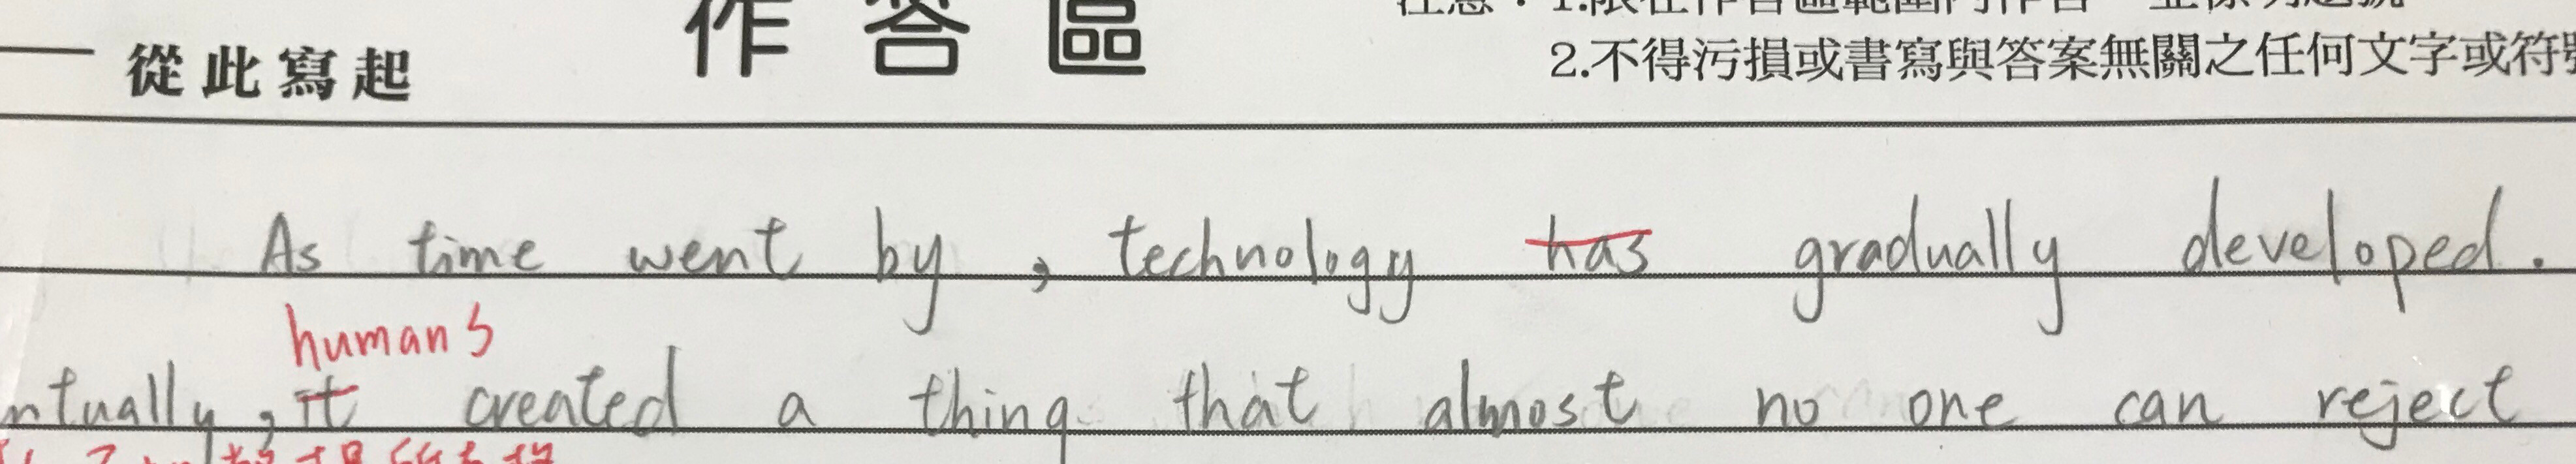 作答區
2.不得污損或書寫與答案無關之任何文字或符號
從此寫起
As time went by, technology has gradually developed.
humans
ntually, it created a thing that almost no one can reject